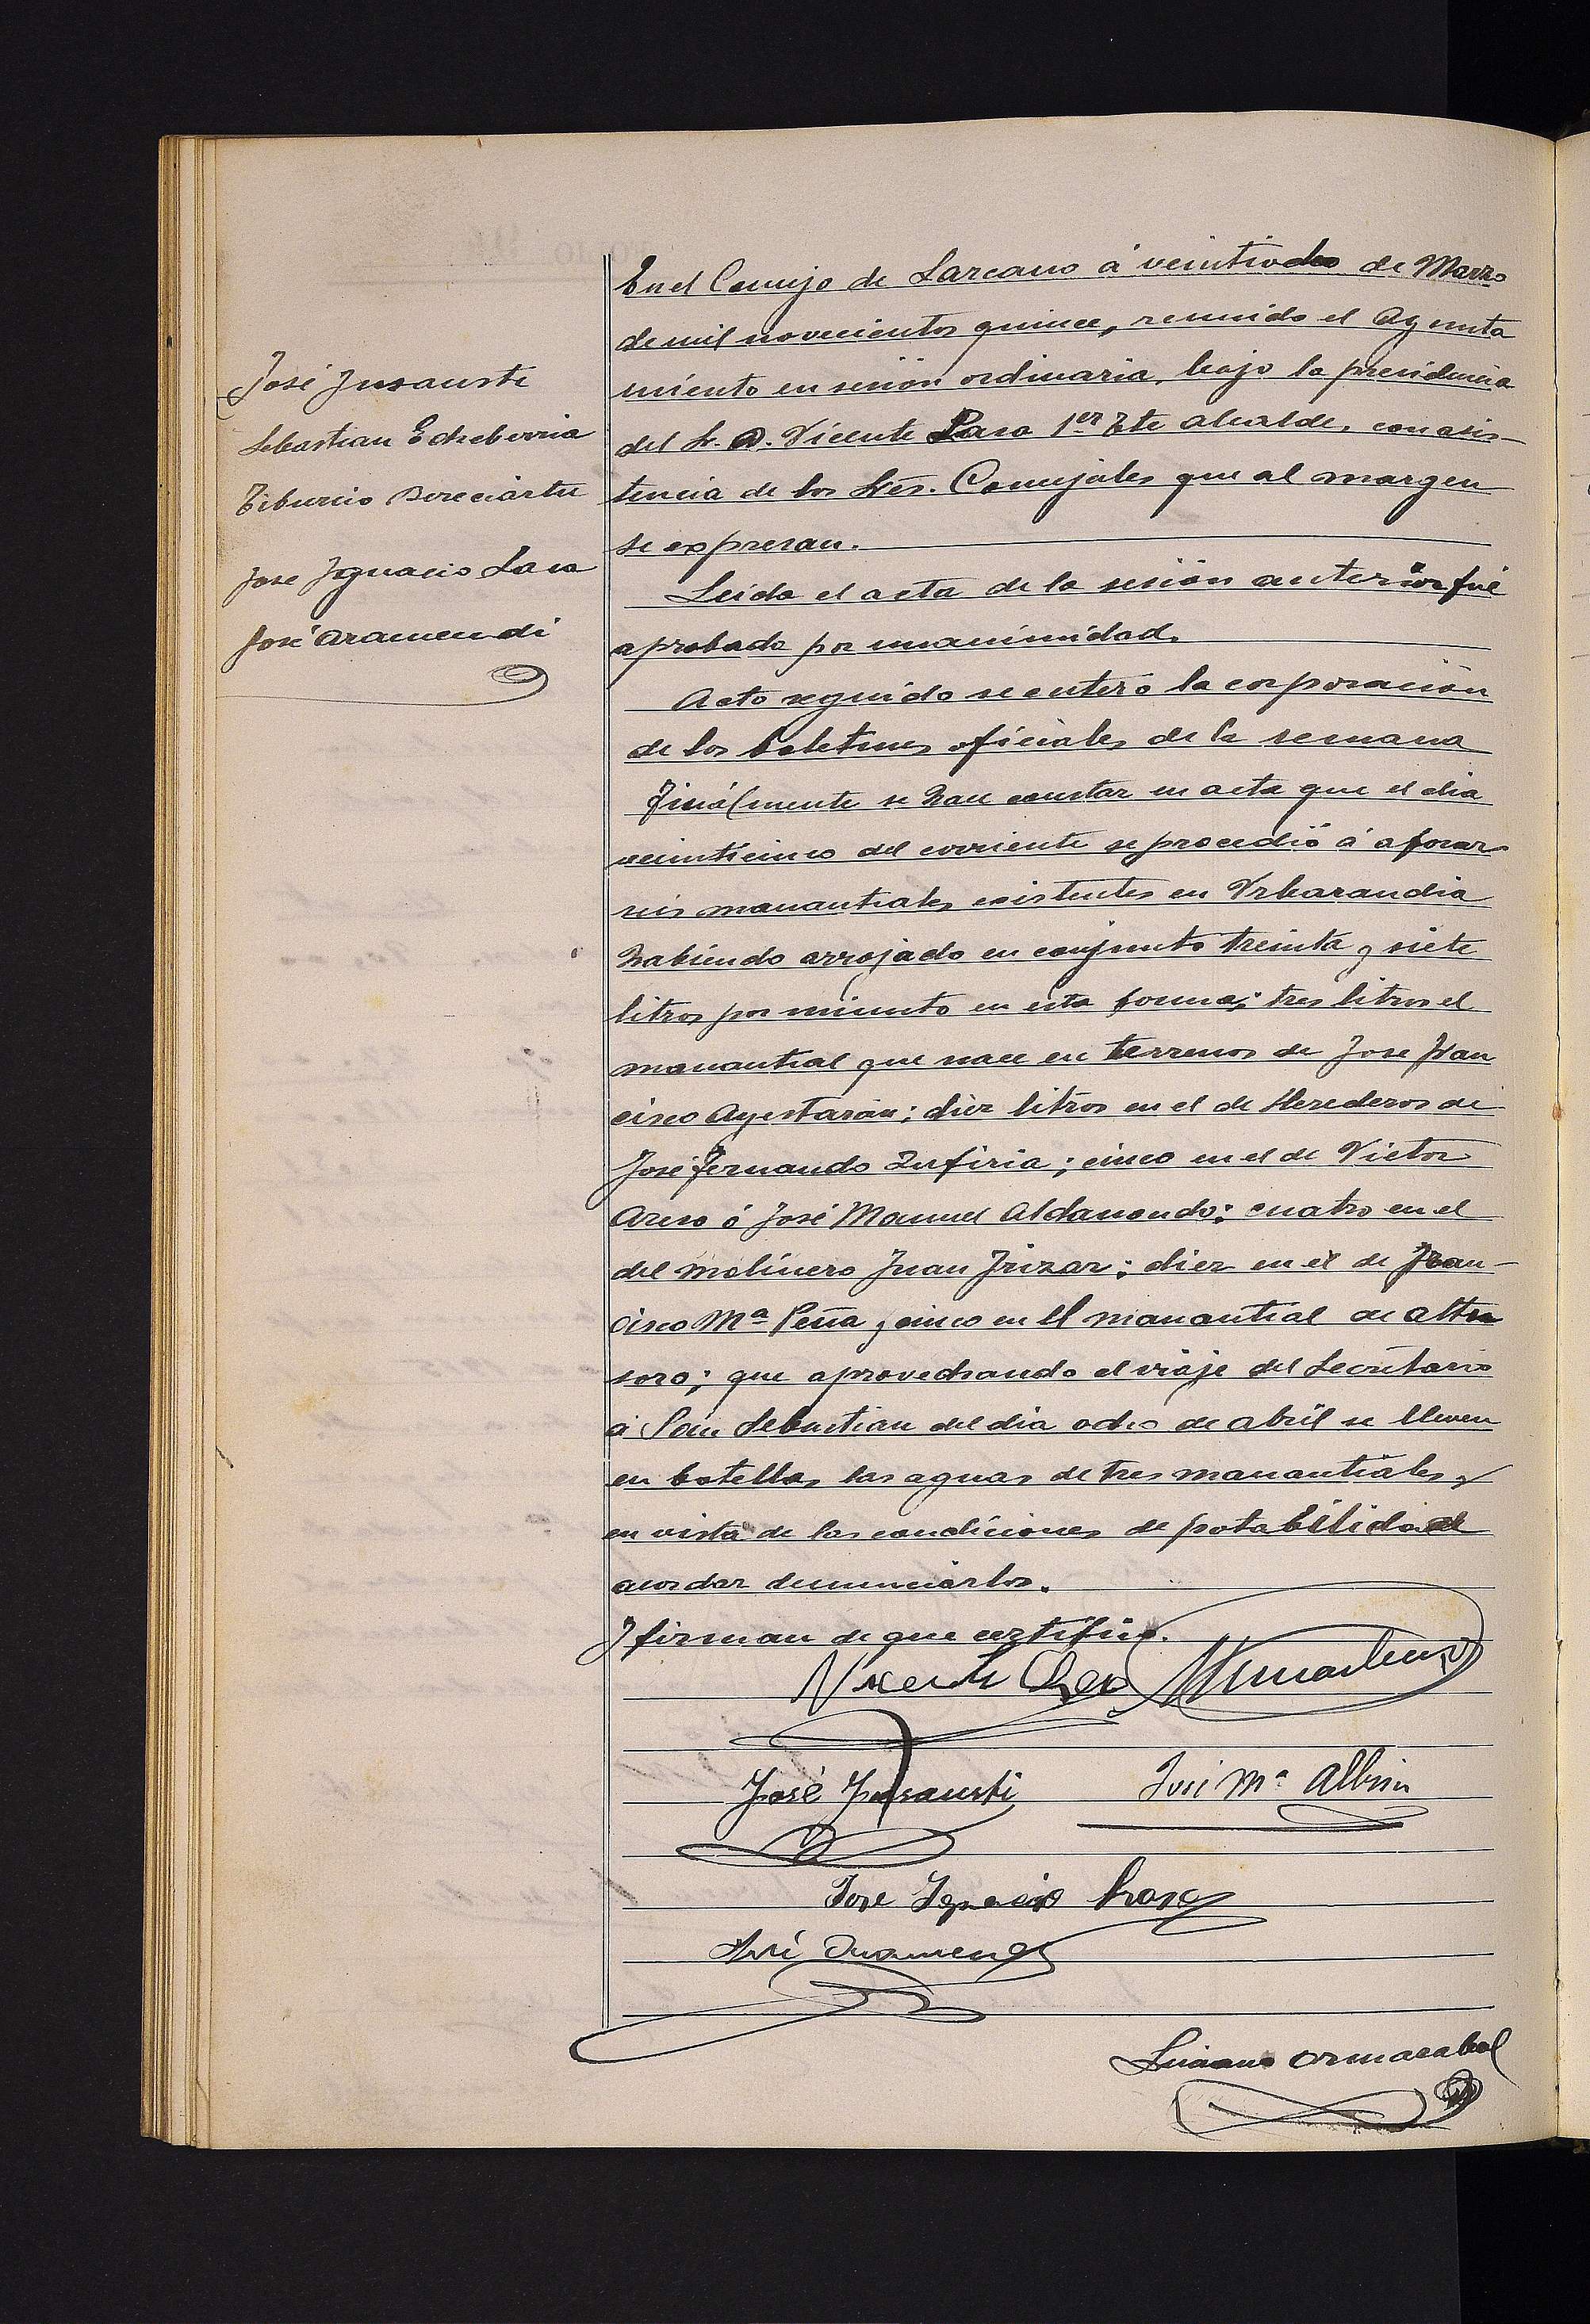 José Insausti
Sebastian Echeberria
Tiburcio Bereciartu
Jose Ignacio Lasa
José Aramendi
En el Concejo de Lazcano á veintiocho de Marzo
de mil novecientos quince, reunido el Ayunta
miento en sesión ordinaria, bajo la presidencia
del Sr. D. Vicente Lasa 1er Tte Alcalde, con asis-
tencia de los Sres. Concejales que al margen
se expresan.
Leida el acta de la sesión anterior fué
aprobada por unanimidad.
Acto seguido se enteró la corporación
de los boletines oficiales de la semana
Finalmente se hace constar en acta que el dia
veinticinco del corriente se procedió á aforar
seis manantiales existentes en Urbarandia
habiendo arrojado en conjunto treinta y siete
litros por minuto en esta forma; tres litros el
manantial que nace en terrenos de Jose Fran
cisco Ayestarán; diez litros en el de Herederos de
José Fernando Zufiria; cinco en el de Victor
Areso ó José Manuel Aldanondo; cuatro en el
del molinero Juan Irizar; diez en el de Fran-
cisco Mª Peña y cinco en el manantial de Altu
soro; que aprovechando el viaje del Secretario
á San Sebastian del dia ocho de abril se lleven
en botellas las aguas de tres manantiales y
en vista de las condiciones de potabilidad
acordar denunciarlos.
Y firman de que certifico.
Vicente Lasa
José Insausti José Mª Albisu
Jose Ignacio Lasa
José Aramendi
Luciano Ormazabal